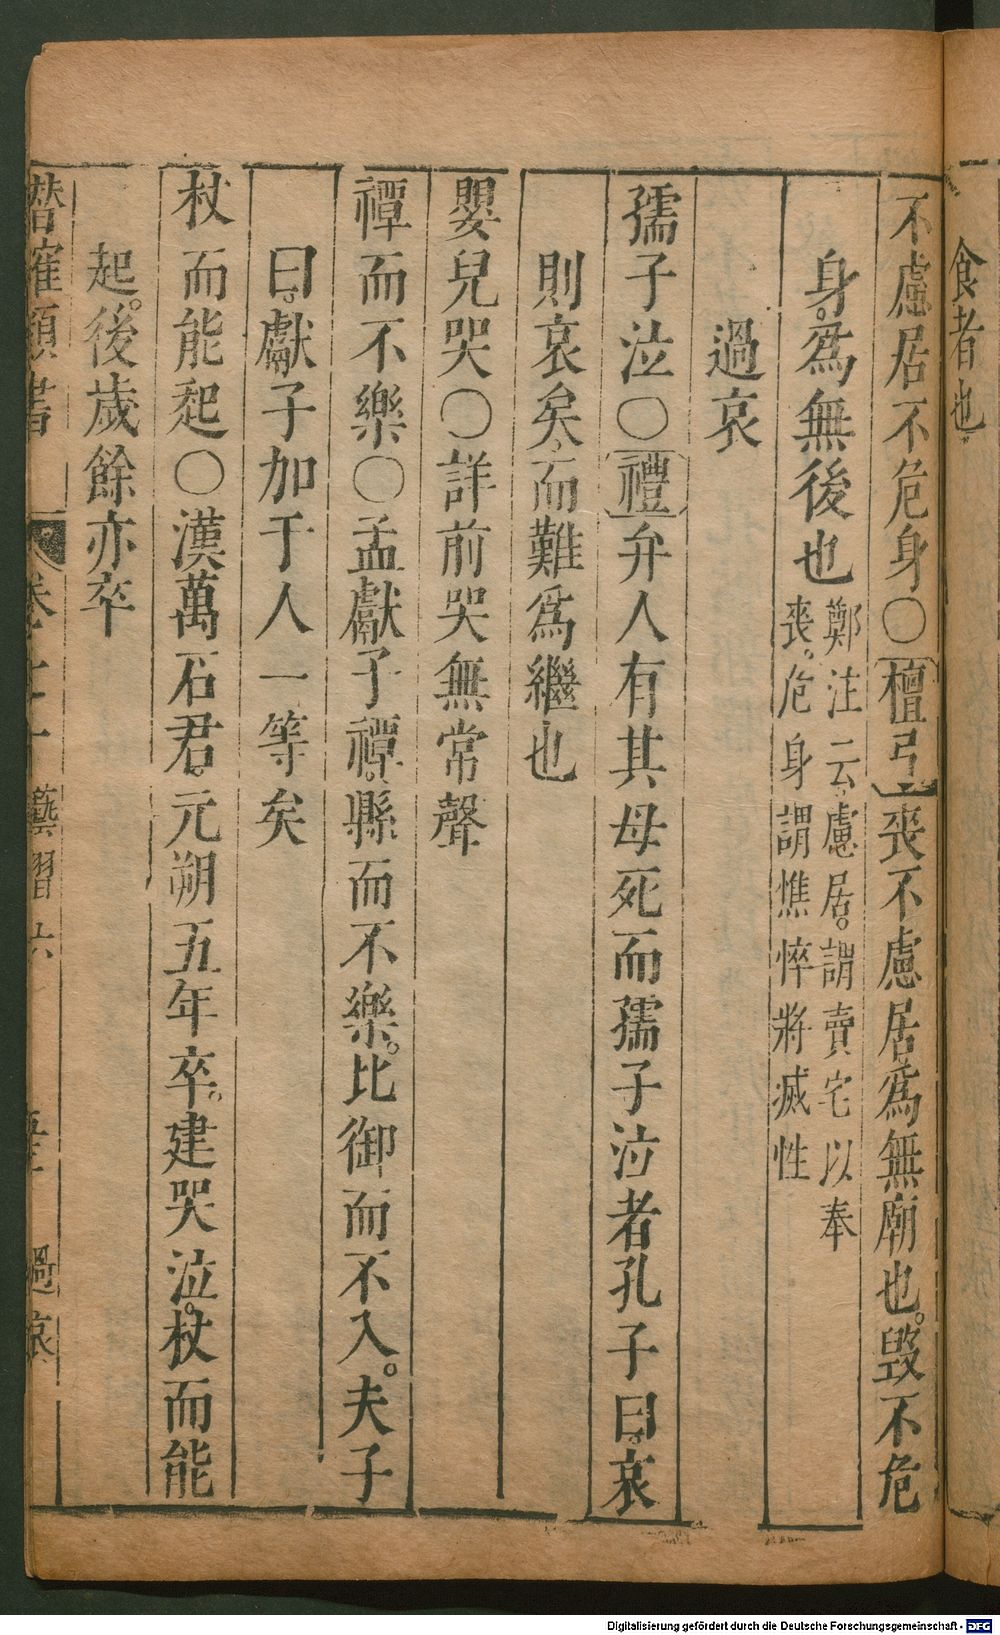 食者也
不慮居不危身○檀弓喪不慮居爲無廟也毀不危
身爲無後也
鄭注云慮居謂賣宅以奉
喪危身謂憔悴將滅性
過哀
孺子泣○禮弁人有其母死而孺子泣者孔子曰哀
則哀矣而難爲繼也
嬰兒哭○詳前哭無常聲
禫而不樂○孟獻子禫縣而不樂比御而不入夫子
曰獻子加于人一等矣
杖而能起○漢萬石君元朔五年卒建哭泣杖而能
起後歲餘亦卒
類書 卷 藝習六 過哀
Digitalisierung gefördert durch die Deutsche Forschungsgemeinschaft - DFG